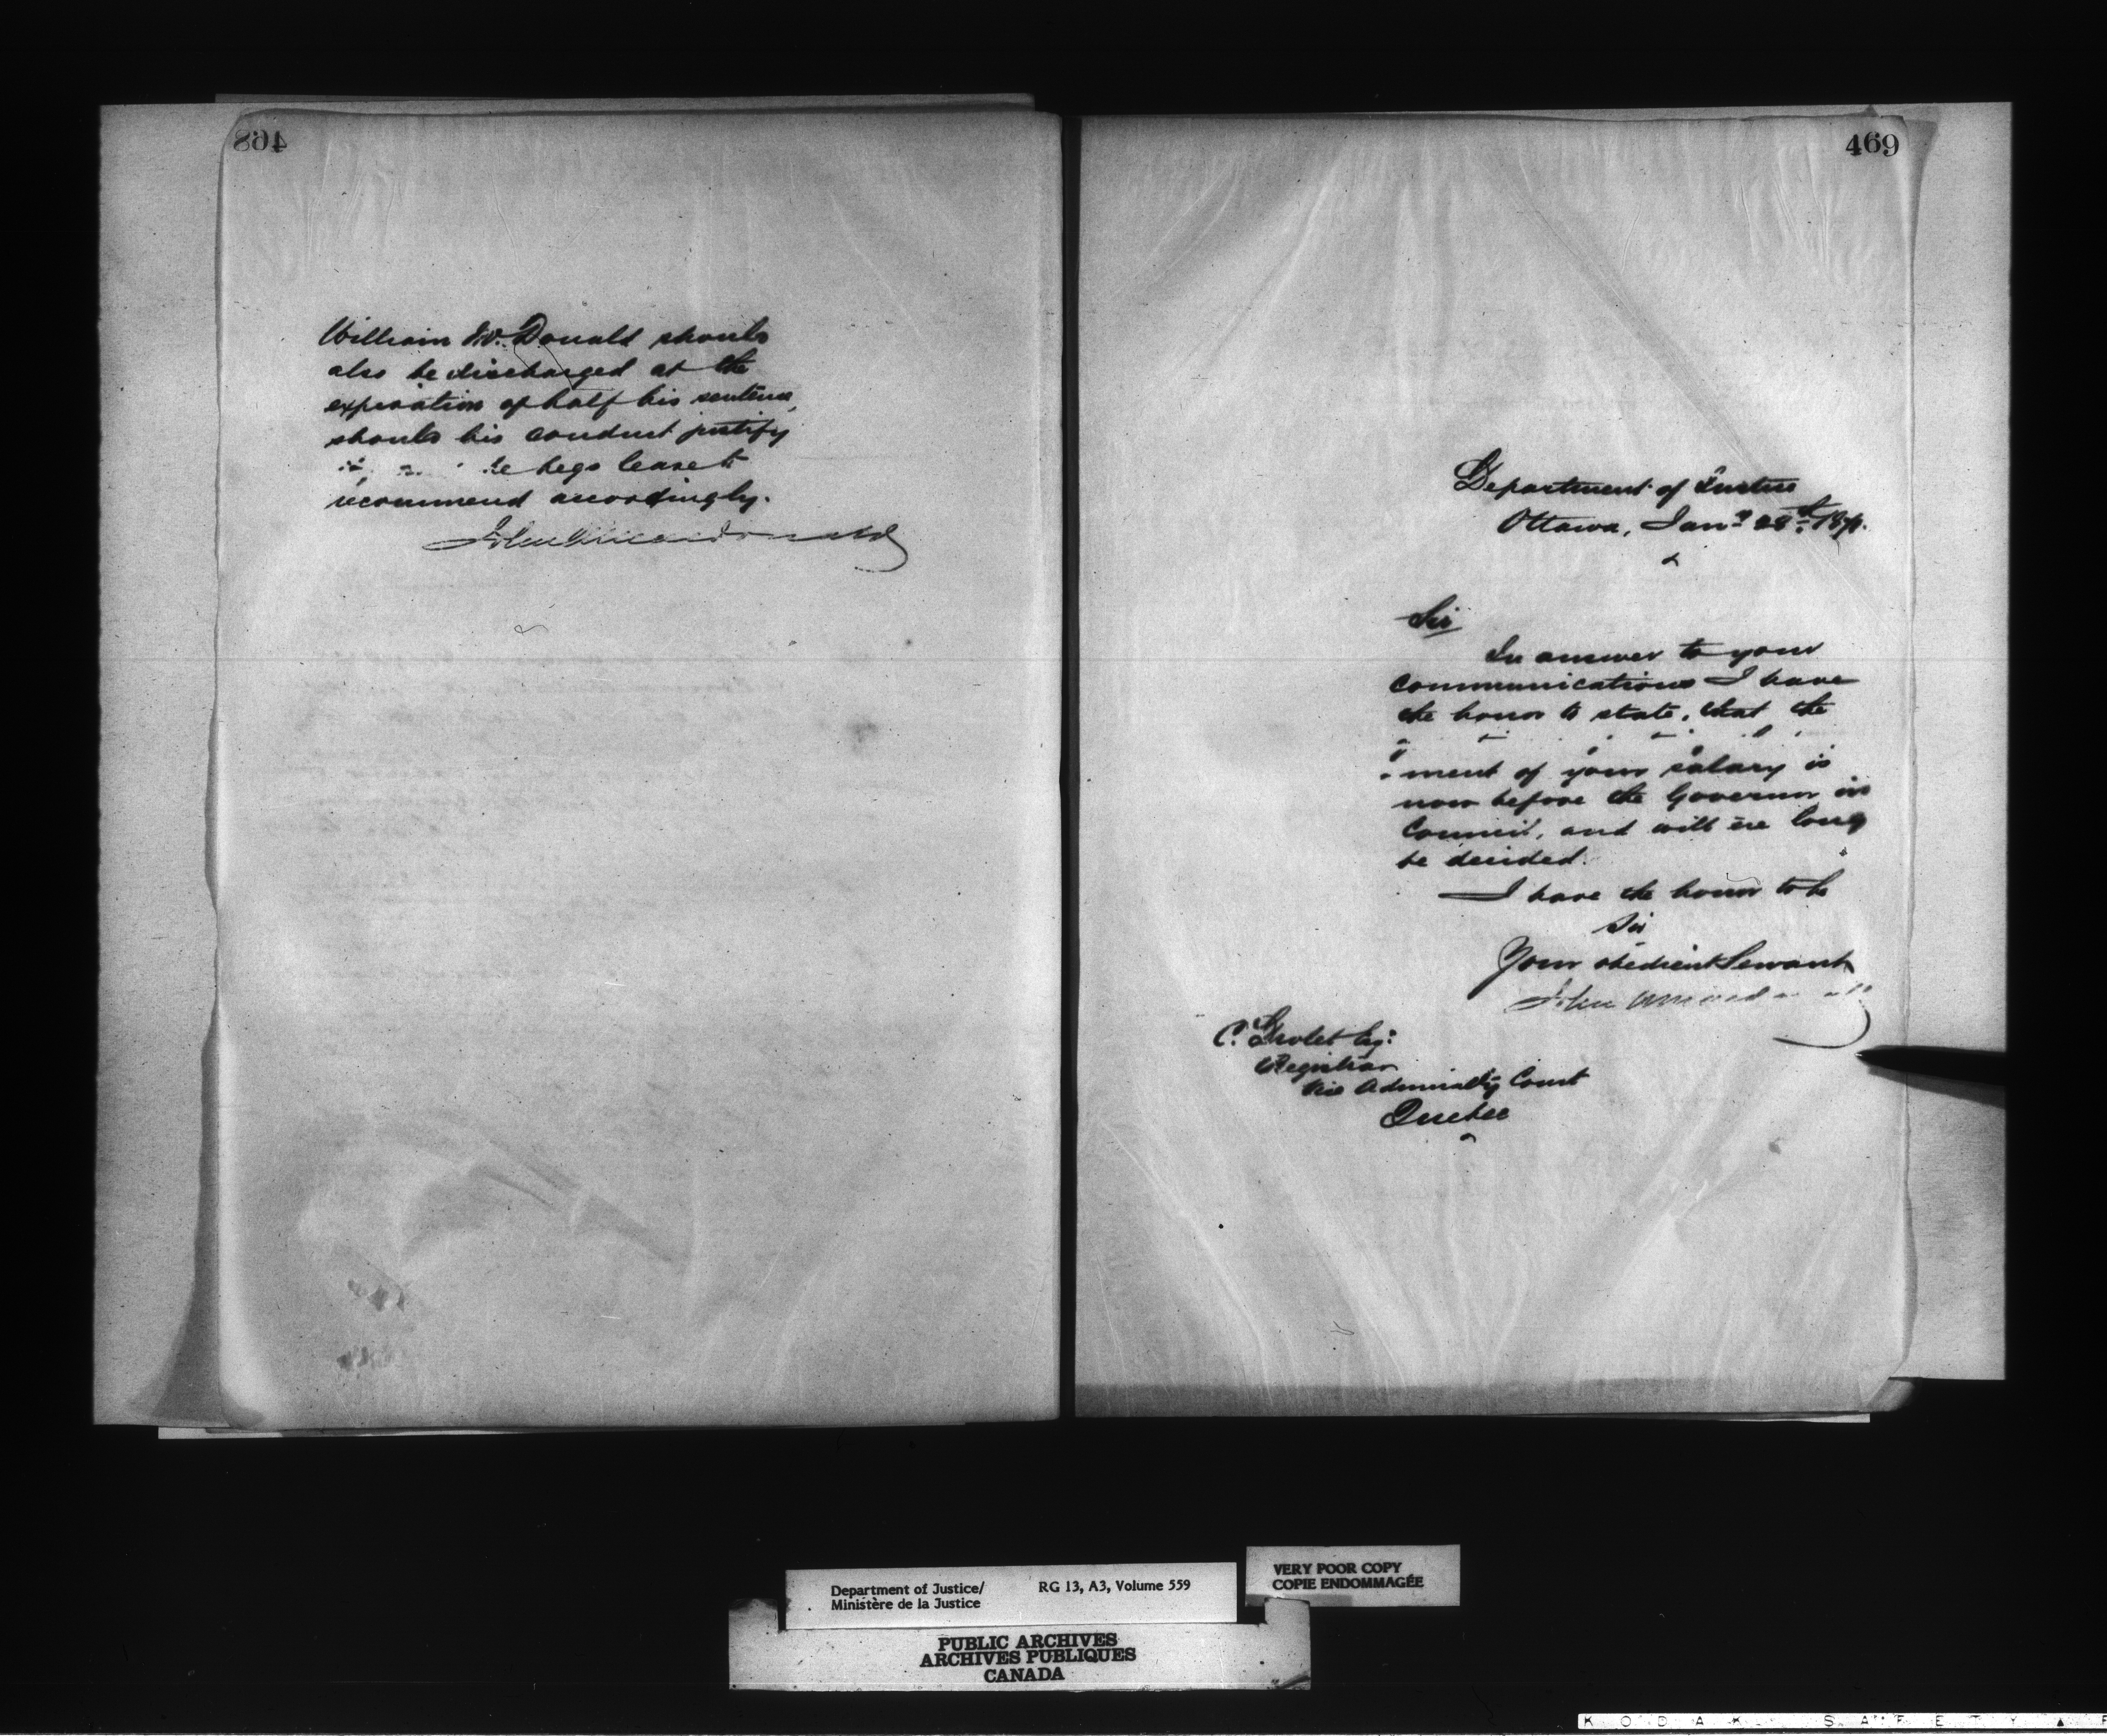 468
William McDonald should
also be discharged at the
expiration of half his sentence,
should his conduct justify
it, he begs leave to
recommend accordingly.
John A Macdonald
469
Department of Justice
Ottawa, Jany 28th 187
Sir
In answer to your
communications I have
the honor to state, that the
ment of your salary is
now before the Governor in
Council, and will ere long
be decided.
I have the honor to be
Sir
Your obedient Servant
John A Macdonald
C. Esq:
Registrar
Vice Admiralty Court
Quebec
Department of Justice/ RG 13, A3, Volume 559
Ministère de la Justice
VERY POOR COPY
COPIE ENDOMMAGÉE
PUBLIC ARCHIVES
ARCHIVES PUBLIQUES
CANADA
KODAK SAFETY